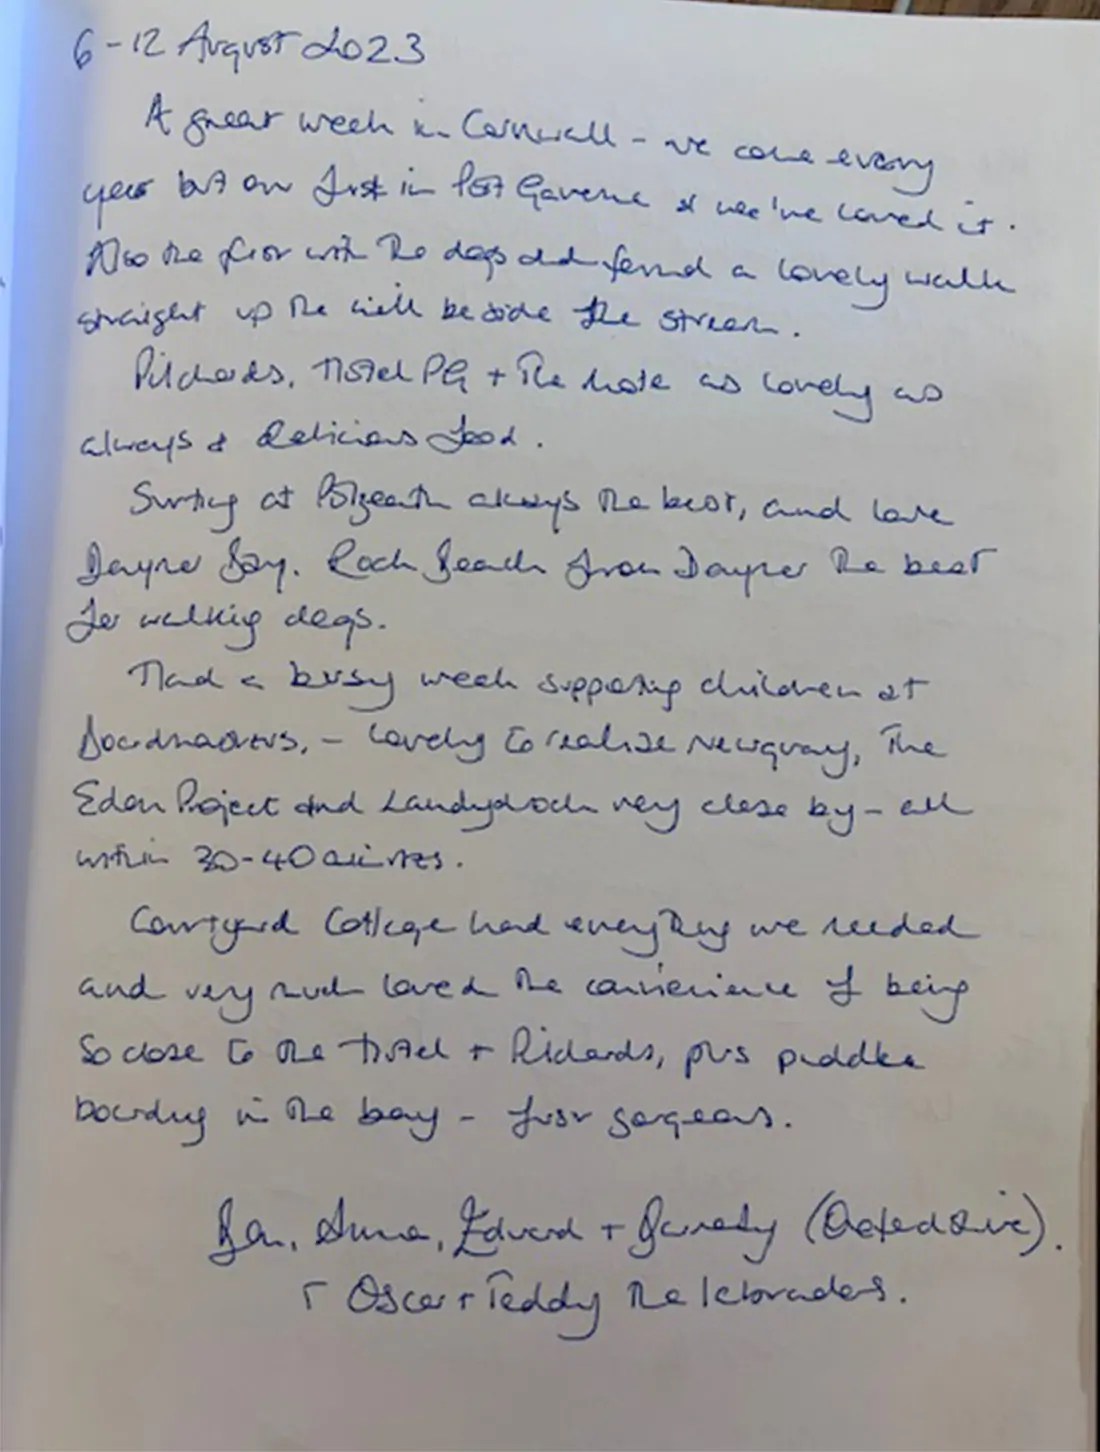 6-12 August 2023
A great week in Cornwall - we come every
year but our first in Port Gaverne & we've loved it.
Also the first with the dogs and found a lovely walk
straight up the hill beside the stream.
Pilchards, Hotel PG + The mote as lovely as
always & delicious food.
Surfing at Polzeath always the best, and love
Daymer Bay. Rock Beach from Daymer the best
for walking dogs.
Had a busy week supporting children at
Boardmasters, - lovely to realise Newquay, The
Eden Project and Lanhydrock very close by - all
within 30-40 minutes.
Courtyard Cottage had everything we needed
and very much loved the convenience of being
so close to the Hotel + Pilchards, plus paddle
boarding in the bay - just gorgeous.
Ben, Anna, Edward + (Oxfordshire).
+ Oscar + Teddy the labradors.